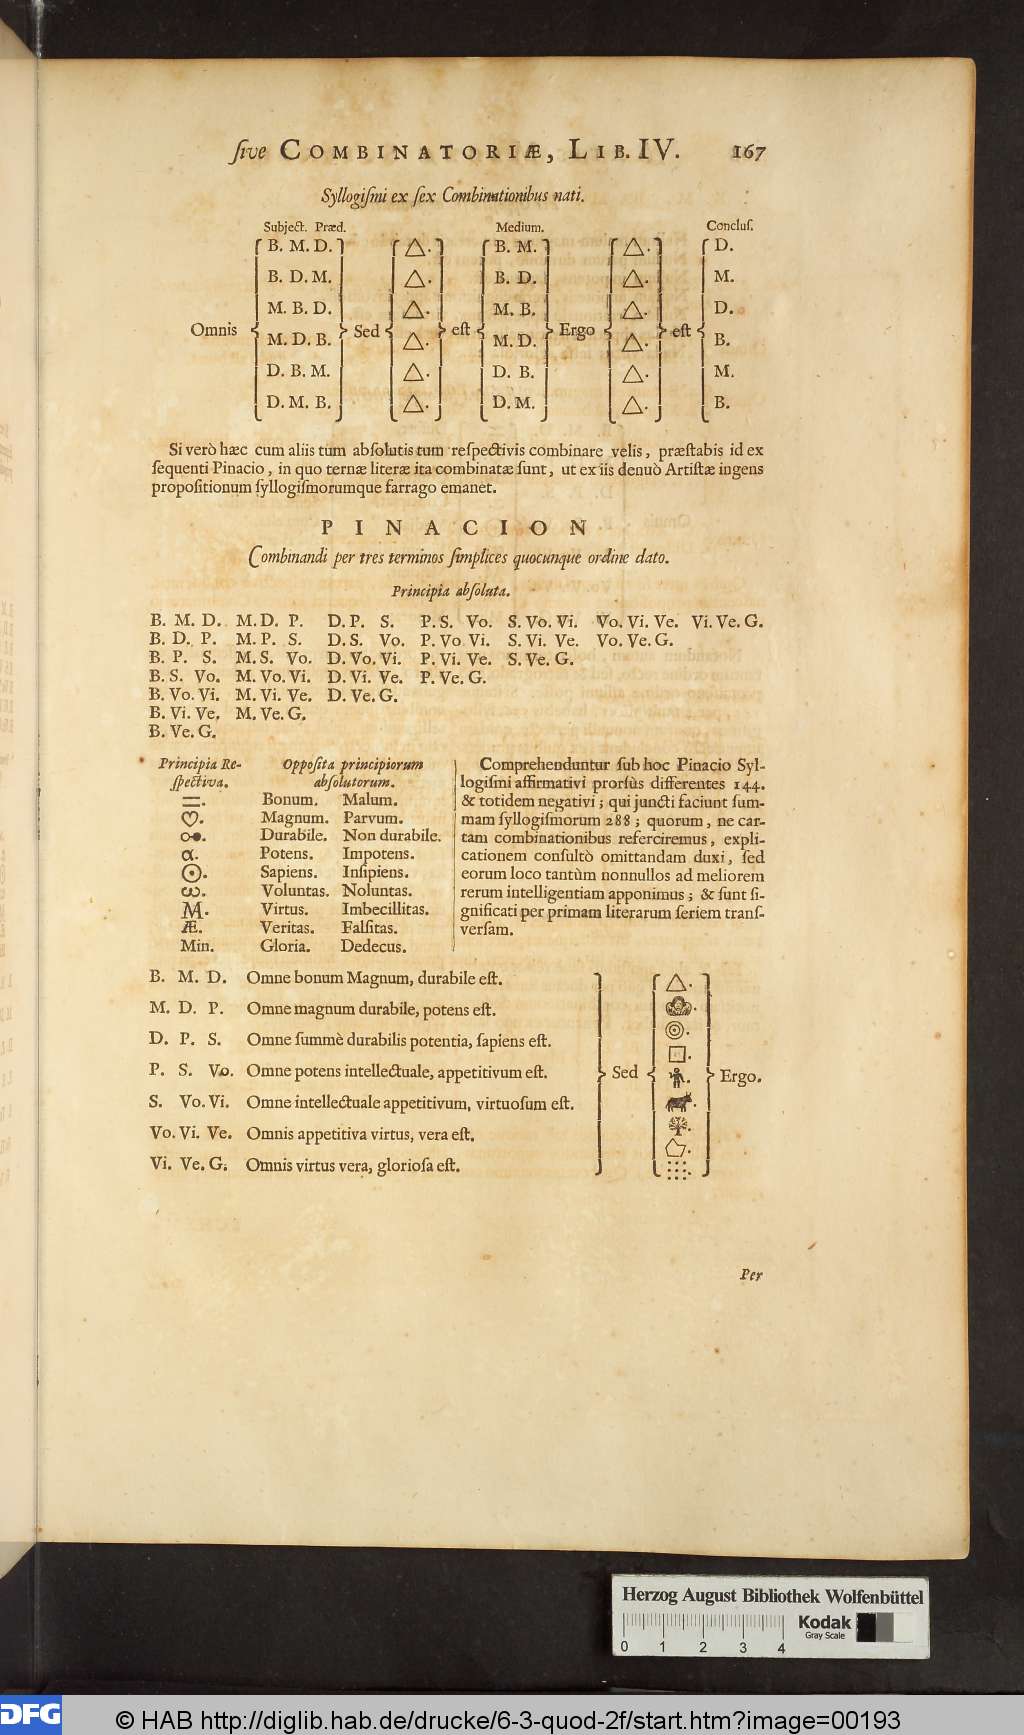 ſive COMBINATORIÆ, LIB. IV. 167
Syllogiſmi ex ſex Combinationibus nati.
Subject. Præd. Medium. Concluſ.
B. M. D. △. B. M. △. D.
B. D. M. △. B. D. △. M.
M. B. D. △. M. B. △. D.
Omnis Sed eſt Ergo eſt
M. D. B. △. M. D. △. B.
D. B. M. △. D. B. △. M.
D. M. B. △. D. M. △. B.
Si verò hæc cum aliis tum abſolutis tum reſpectivis combinare velis, præſtabis id ex
ſequenti Pinacio, in quo ternæ literæ ita combinatæ ſunt, ut ex iis denuò Artiſtæ ingens
propoſitionum ſyllogiſmorumque farrago emanet.
PINACION
Combinandi per tres terminos ſimplices quocunque ordine dato.
Principia abſoluta.
B. M. D. M. D. P. D. P. S. P. S. Vo. S. Vo. Vi. Vo. Vi. Ve. Vi. Ve. G.
B. D. P. M. P. S. D. S. Vo. P. Vo Vi. S. Vi. Ve. Vo. Ve. G.
B. P. S. M. S. Vo. D. Vo. Vi. P. Vi. Ve. S. Ve. G.
B. S. Vo. M. Vo. Vi. D. Vi. Ve. P. Ve. G.
B. Vo. Vi. M. Vi. Ve. D. Ve. G.
B. Vi. Ve. M. Ve. G.
B. Ve. G.
Principia Re-
ſpectiva.
Oppoſita principiorum
abſolutorum.
Bonum. Malum.
Magnum. Parvum.
Durabile. Non durabile.
α. Potens. Impotens.
Sapiens. Inſipiens.
ω. Voluntas. Noluntas.
M. Virtus. Imbecillitas.
Æ. Veritas. Falſitas.
Min. Gloria. Dedecus.
Comprehenduntur ſub hoc Pinacio Syl-
logiſmi affirmativi prorſùs differentes 144.
& totidem negativi; qui juncti faciunt ſum-
mam ſyllogiſmorum 288; quorum, ne car-
tam combinationibus referciremus, expli-
cationem conſultò omittandam duxi, ſed
eorum loco tantùm nonnullos ad meliorem
rerum intelligentiam apponimus; & ſunt ſi-
gnificati per primam literarum ſeriem tranſ-
verſam.
B. M. D. Omne bonum Magnum, durabile eſt.
M. D. P. Omne magnum durabile, potens eſt.
D. P. S. Omne ſummè durabilis potentia, ſapiens eſt.
P. S. Vo. Omne potens intellectuale, appetitivum eſt.
Sed Ergo.
S. Vo. Vi. Omne intellectuale appetitivum, virtuoſum eſt.
Vo. Vi. Ve. Omnis appetitiva virtus, vera eſt.
Vi. Ve. G. Omnis virtus vera, glorioſa eſt.
Per
Herzog August Bibliothek Wolfenbüttel
Kodak
Gray Scale
0 1 2 3 4
DFG
© HAB http://diglib.hab.de/drucke/6-3-quod-2f/start.htm?image=00193